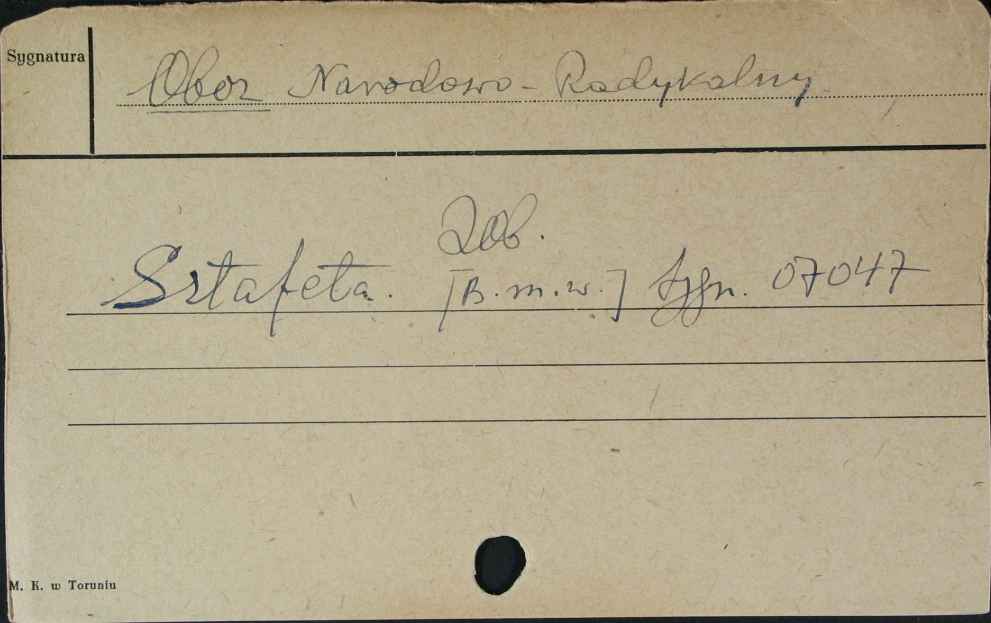 Sygnatura
Oboz Narodowo-Radykalny
Zob.
Sztafeta. [B.m.w.] Sygn. 07047
M. K. w Toruniu